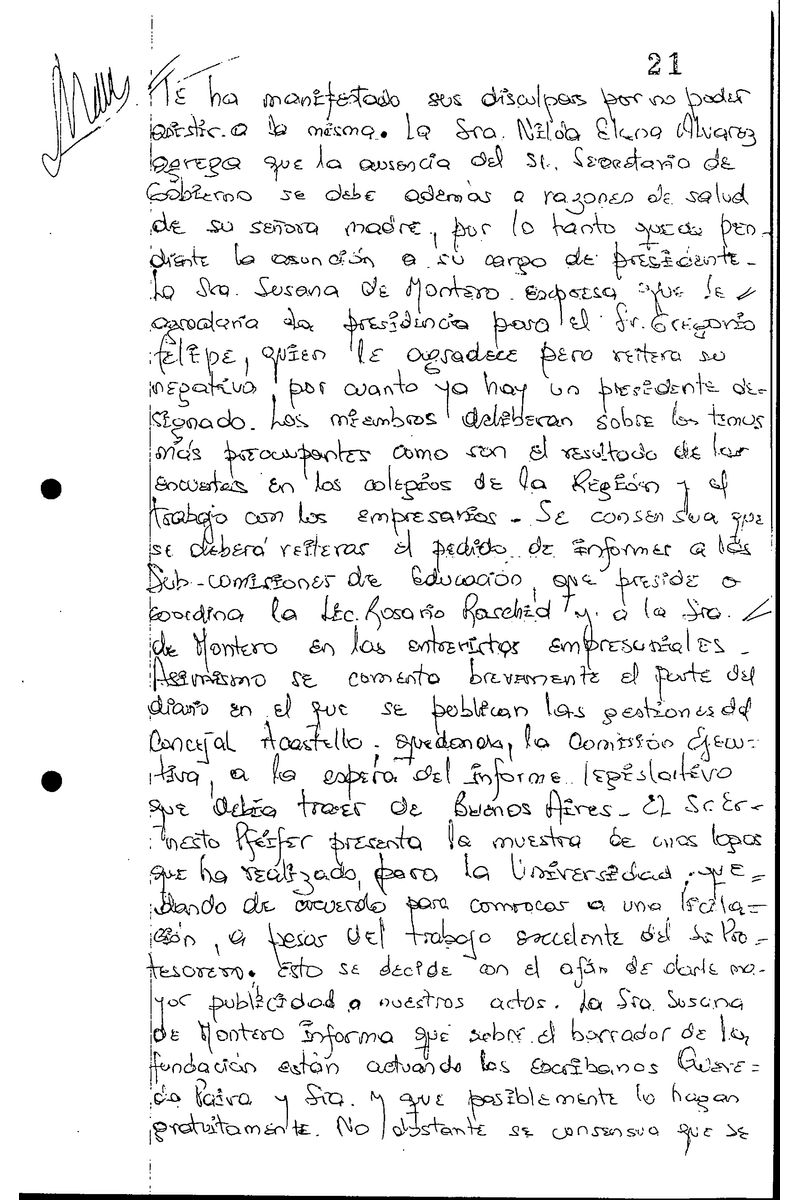 21
Té ha manifestado sus disculpas por no poder
asistir a la misma. La Sra. Nilda Elena Alvarez
agrega que la ausencia del Sr. Secretario de
Gobierno se debe además a razones de salud
de su señora madre, por lo tanto queda pen-
diente la asunción a su cargo de presidente.-
La Sra. Susana de Montero expresa que le
agradaría la presidencia para el Sr. Gregorio
Felipe, quien le agradece pero reitera su
negativa, por cuanto ya hay un presidente de-
signado. Los miembros deliberan sobre los temas
más preocupantes como son el resultado de las
encuestas en los colegios de la Región y el
trabajo con los empresarios.- Se consensua que
se deberá reiterar el pedido de informes a las
Sub-comisiones de Educación, que preside o
coordina la Lic. Rosario Raschid y a la Sra.
de Montero en las entrevistas empresariales.-
Asimismo se comenta brevemente el parte del
diario en el que se publican las gestiones del
Concejal Acastello, quedando, la Comisión Ejecu-
tiva, a la espera del informe legislativo
que debía traer de Buenos Aires.- El Sr. Er-
nesto Pfeifer presenta la muestra de unos logos
que ha realizado, para la Universidad, que-
dando de acuerdo para convocar a una
a pesar del trabajo excelente del Sr Pro-
tesorero. Esto se decide con el afán de darle ma-
yor publicidad a nuestros actos. La Sra. Susana
de Montero informa que sobre el borrador de la
fundación están actuando los escribanos
Paiva y Sra. y que posiblemente lo hagan
gratuitamente. No obstante se consensua que se